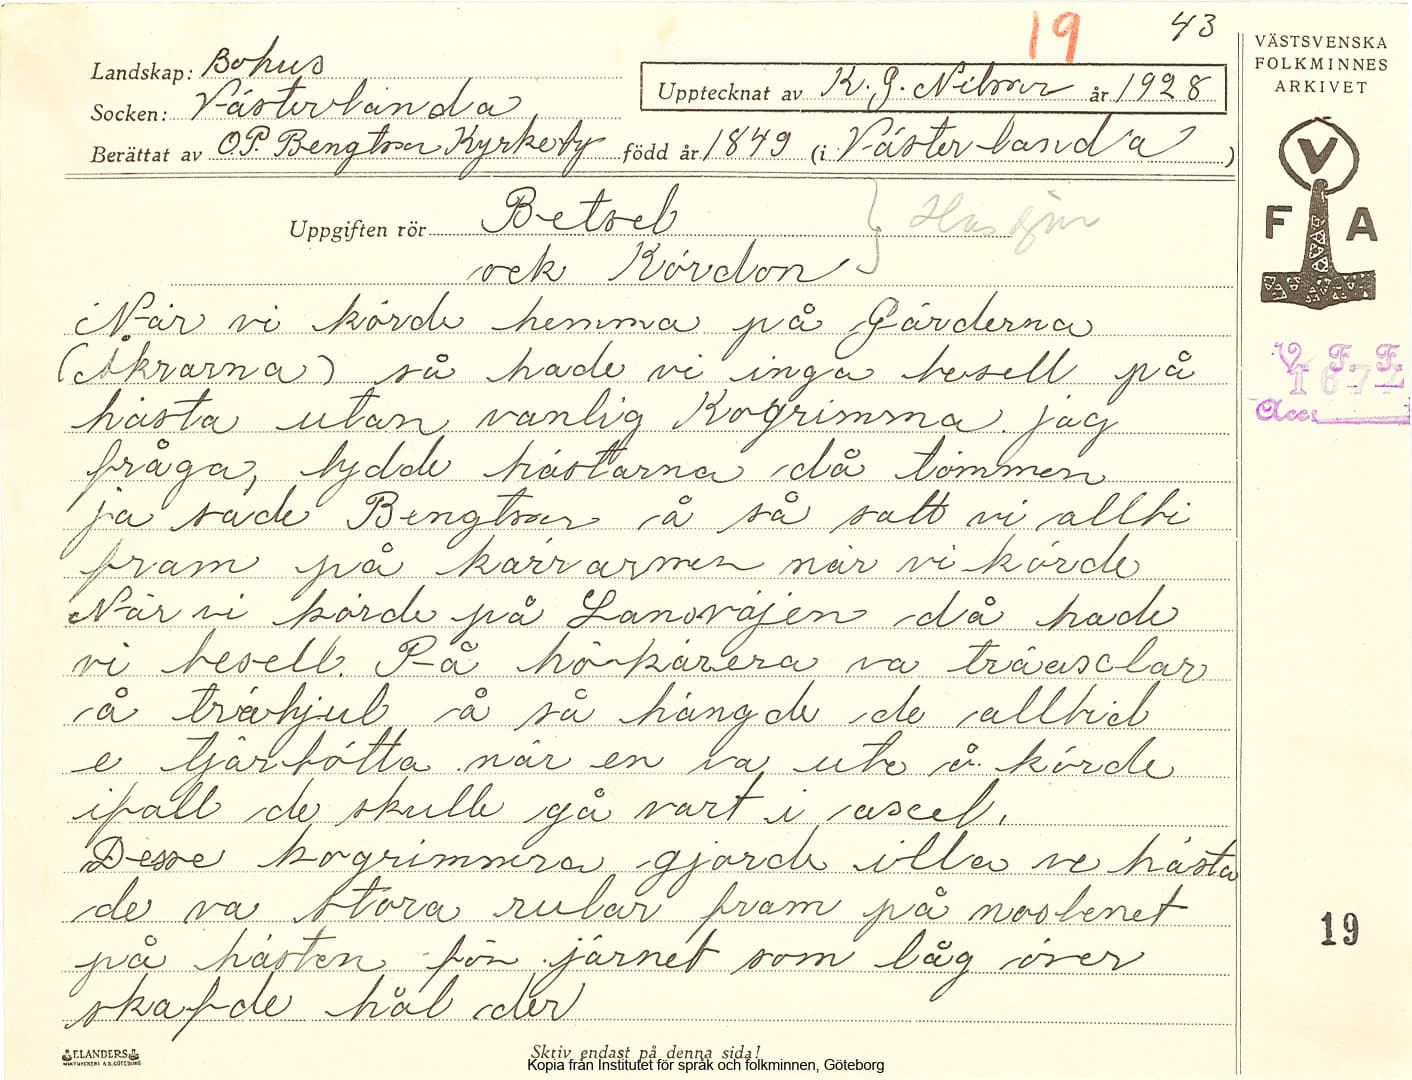 19
43
Landskap: Bohus
Socken: Västerlanda
Berättat av O.P. Bengtson Kyrkeby född år 1849 (i Västerlanda)
Upptecknat av K. G. Nilson år 1928
VÄSTSVENSKA
FOLKMINNES
ARKIVET
V
F A
V. F. F.
Acc.
Uppgiften rör Betsel
ock Kördon
När vi körde hemma på Gärderna
(Åkrarna) så hade vi inga besell på
hästa utan vanlig Kogrimma. jag
fråga, lydde hästarna då tömmen
ja sade Bengtson å så satt vi allti
fram på kärrarmen när vi körde
När vi körde på Lansväjen då hade
vi besell. På hökärera va träaslar
å trähjul å så hängde de alltid
e tjärbötta när en va ute å körde
ifall de skulle gå vart i axel.
Desse kogrimmera gjorde illa ve hästa
de va stora rular fram på nosbenet
på hästen för järnet som låg över
skafde hål der
19
ELANDERS
Skriv endast på denna sida!
Kopia från Institutet för språk och folkminnen, Göteborg